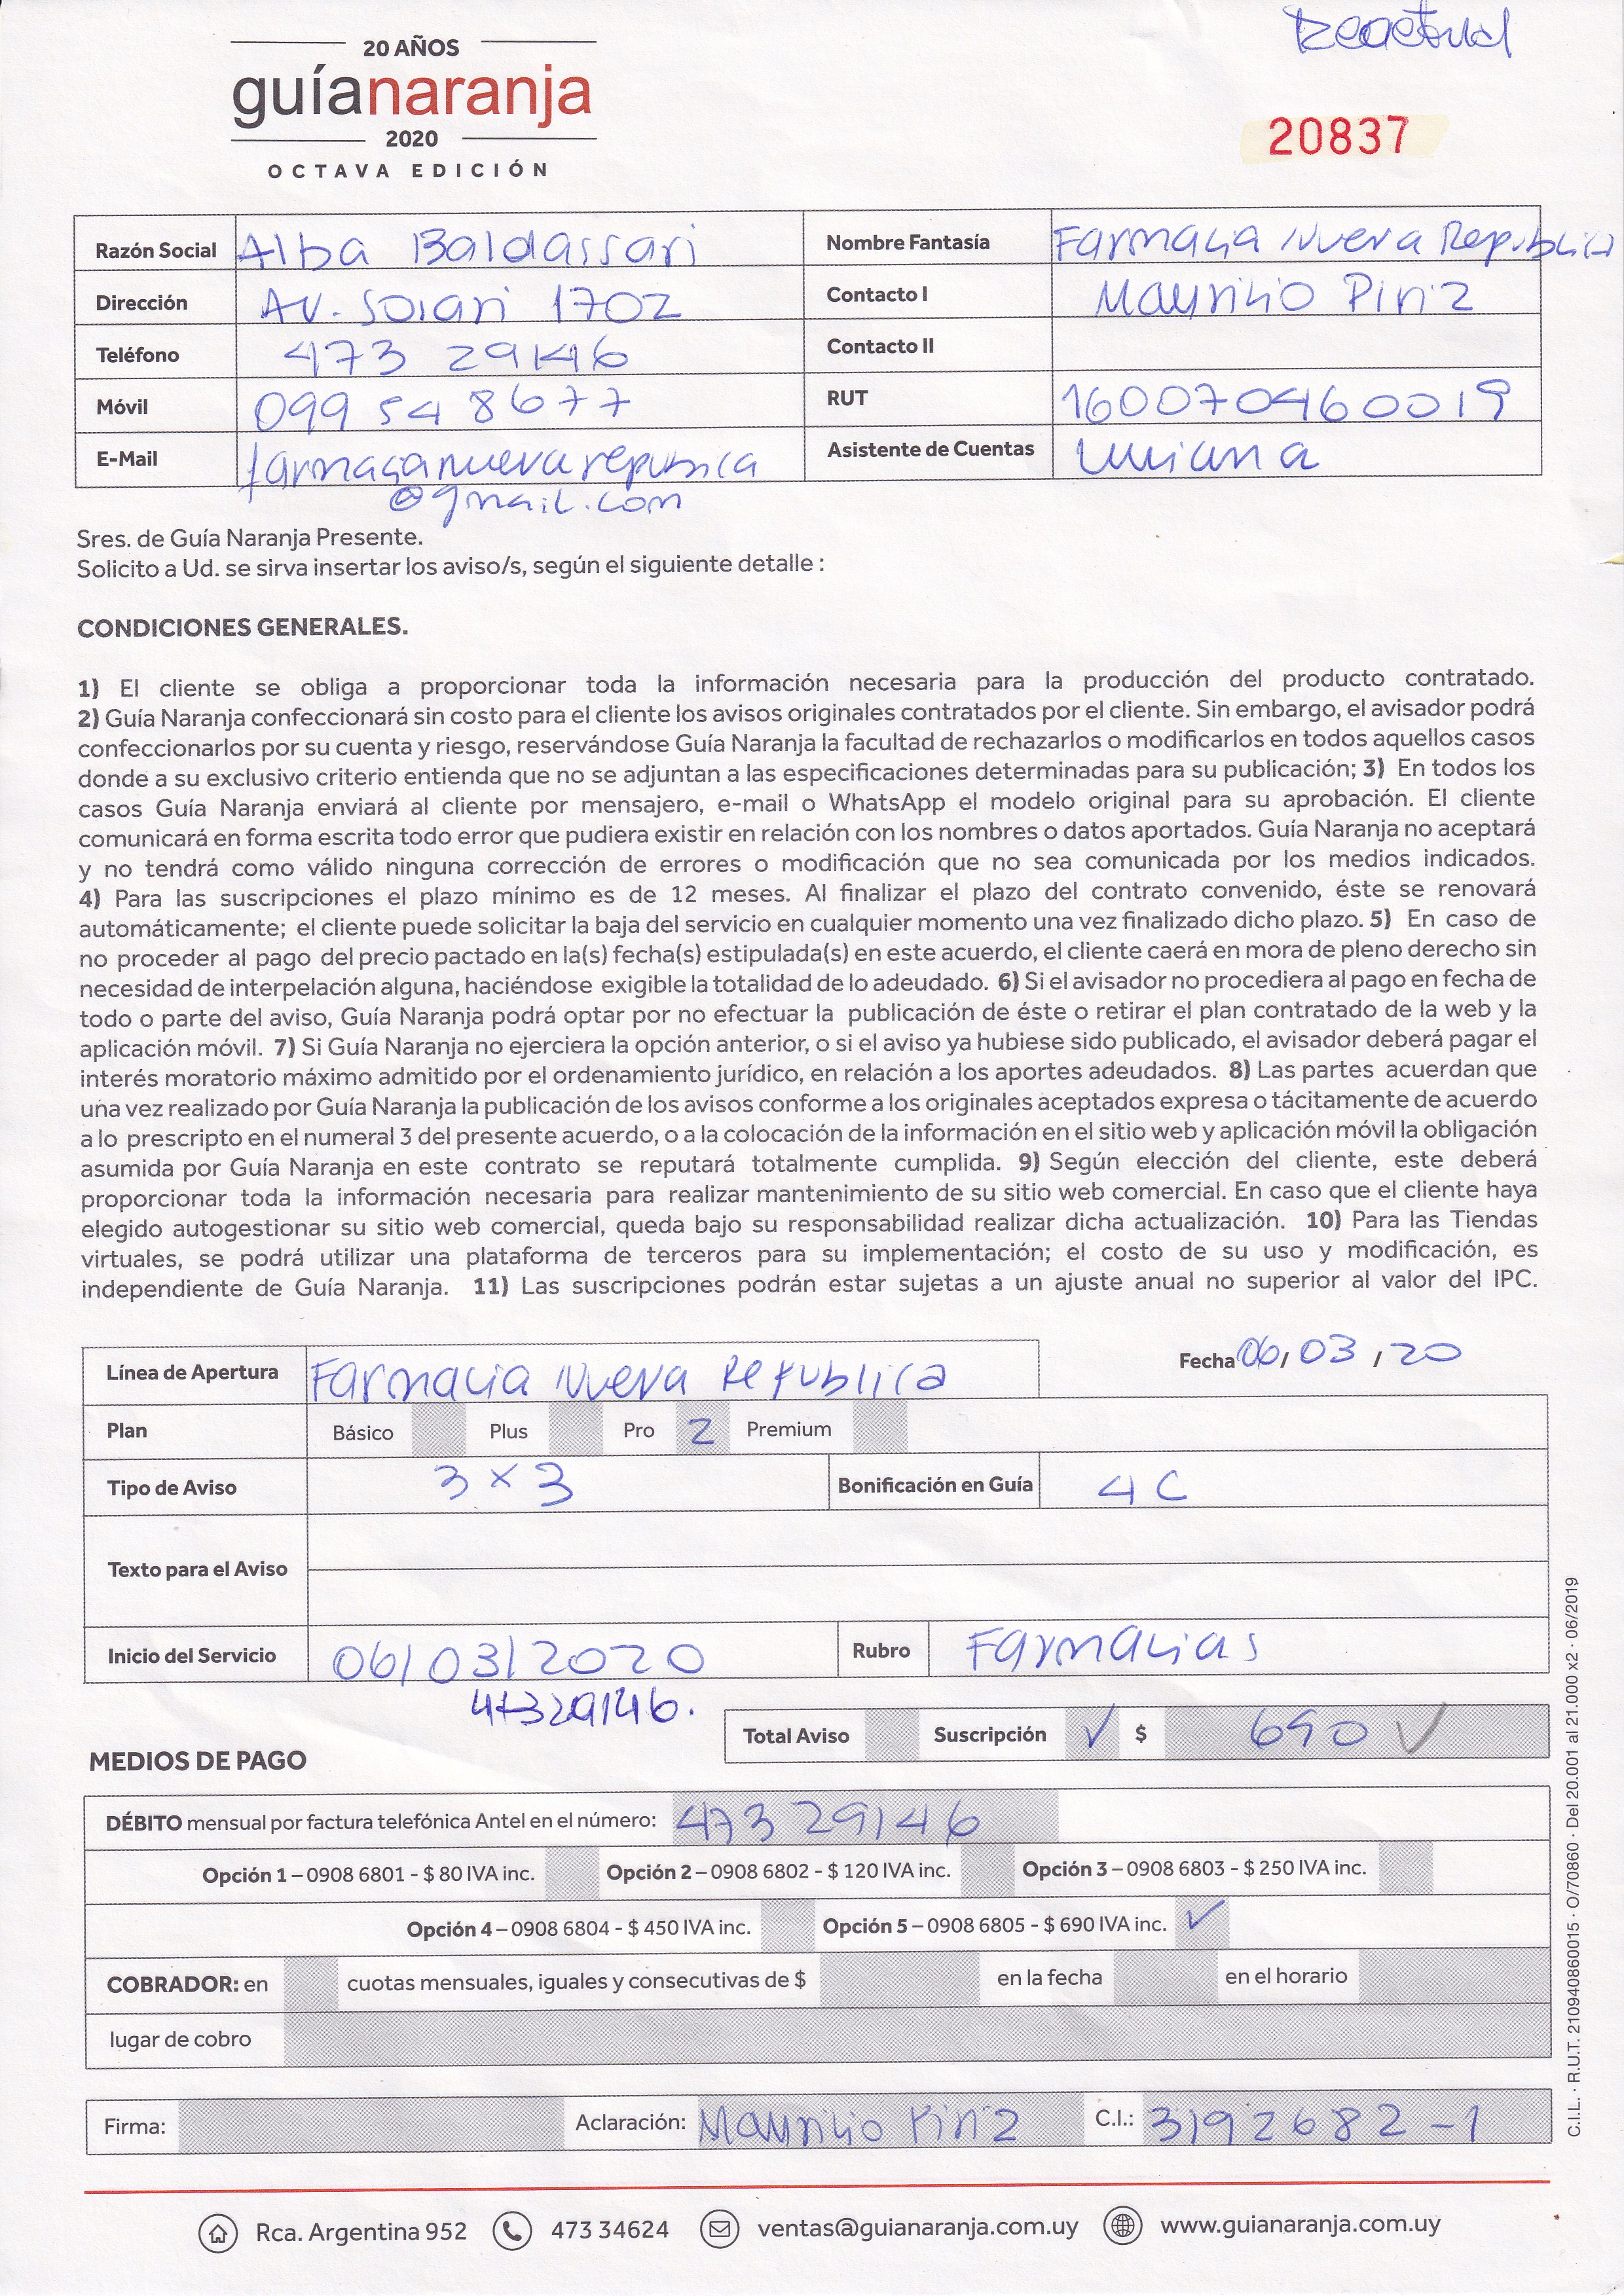 20 AÑOS
guíanaranja
2020
OCTAVA EDICIÓN
20837
Razón Social Alba Baldassari Nombre Fantasía Farmacia Nueva Republica
Dirección Av. Solari 1702 Contacto I Mauricio Piriz
Teléfono 473 29146 Contacto II
Móvil 099 548677 RUT 160070460019
E-Mail farmacianuevarepublica Asistente de Cuentas
@gmail.com
Sres. de Guía Naranja Presente.
Solicito a Ud. se sirva insertar los aviso/s, según el siguiente detalle :
CONDICIONES GENERALES.
1) El cliente se obliga a proporcionar toda la información necesaria para la producción del producto contratado.
2) Guía Naranja confeccionará sin costo para el cliente los avisos originales contratados por el cliente. Sin embargo, el avisador podrá
confeccionarlos por su cuenta y riesgo, reservándose Guía Naranja la facultad de rechazarlos o modificarlos en todos aquellos casos
donde a su exclusivo criterio entienda que no se adjuntan a las especificaciones determinadas para su publicación; 3) En todos los
casos Guía Naranja enviará al cliente por mensajero, e-mail o WhatsApp el modelo original para su aprobación. El cliente
comunicará en forma escrita todo error que pudiera existir en relación con los nombres o datos aportados. Guía Naranja no aceptará
y no tendrá como válido ninguna corrección de errores o modificación que no sea comunicada por los medios indicados.
4) Para las suscripciones el plazo mínimo es de 12 meses. Al finalizar el plazo del contrato convenido, éste se renovará
automáticamente; el cliente puede solicitar la baja del servicio en cualquier momento una vez finalizado dicho plazo. 5) En caso de
no proceder al pago del precio pactado en la(s) fecha(s) estipulada(s) en este acuerdo, el cliente caerá en mora de pleno derecho sin
necesidad de interpelación alguna, haciéndose exigible la totalidad de lo adeudado. 6) Si el avisador no procediera al pago en fecha de
todo o parte del aviso, Guía Naranja podrá optar por no efectuar la publicación de éste o retirar el plan contratado de la web y la
aplicación móvil. 7) Si Guía Naranja no ejerciera la opción anterior, o si el aviso ya hubiese sido publicado, el avisador deberá pagar el
interés moratorio máximo admitido por el ordenamiento jurídico, en relación a los aportes adeudados. 8) Las partes acuerdan que
una vez realizado por Guía Naranja la publicación de los avisos conforme a los originales aceptados expresa o tácitamente de acuerdo
a lo prescripto en el numeral 3 del presente acuerdo, o a la colocación de la información en el sitio web y aplicación móvil la obligación
asumida por Guía Naranja en este contrato se reputará totalmente cumplida. 9) Según elección del cliente, este deberá
proporcionar toda la información necesaria para realizar mantenimiento de su sitio web comercial. En caso que el cliente haya
elegido autogestionar su sitio web comercial, queda bajo su responsabilidad realizar dicha actualización. 10) Para las Tiendas
virtuales, se podrá utilizar una plataforma de terceros para su implementación; el costo de su uso y modificación, es
independiente de Guía Naranja. 11) Las suscripciones podrán estar sujetas a un ajuste anual no superior al valor del IPC.
Línea de Apertura Farmacia Nueva Republica Fecha 06/ 03 / 20
Plan Básico Plus Pro 2 Premium
Tipo de Aviso 3 x 3 Bonificación en Guía 4 C
Texto para el Aviso
Inicio del Servicio 06/03/2020 Rubro Farmacias
47329146.
Total Aviso Suscripción ✓ $ 690 ✓
MEDIOS DE PAGO
DÉBITO mensual por factura telefónica Antel en el número: 473 29146
Opción 1 – 0908 6801 - $ 80 IVA inc. Opción 2 – 0908 6802 - $ 120 IVA inc. Opción 3 – 0908 6803 - $ 250 IVA inc.
Opción 4 – 0908 6804 - $ 450 IVA inc. Opción 5 – 0908 6805 - $ 690 IVA inc. ✓
COBRADOR: en cuotas mensuales, iguales y consecutivas de $ en la fecha en el horario
lugar de cobro
Firma: Aclaración: Mauricio Piriz C.I.: 3192682-1
Rca. Argentina 952 473 34624 ventas@guianaranja.com.uy www.guianaranja.com.uy
C.I.L. · R.U.T. 210940860015 · O/70860 · Del 20.001 al 21.000 x2 · 06/2019